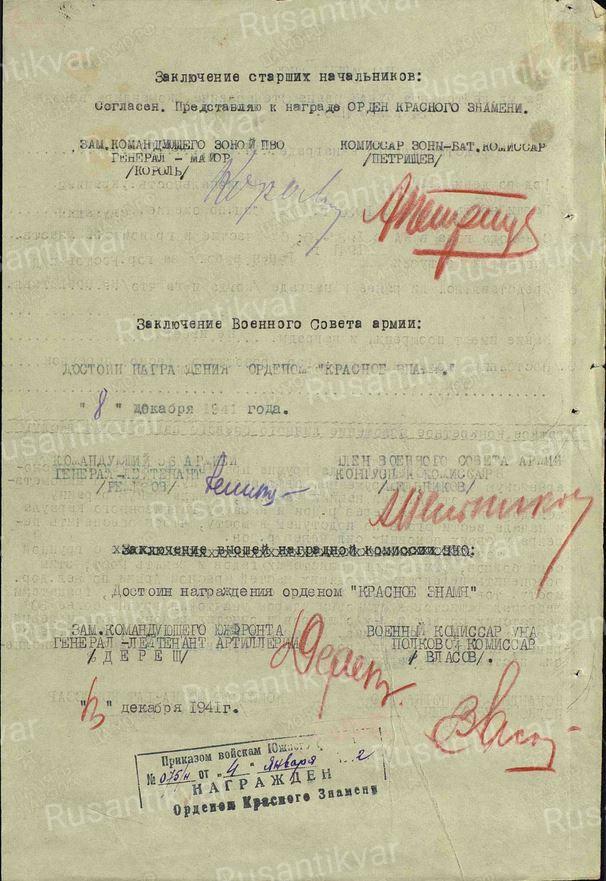 Заключение старших начальников:
Согласен. Представляю к награде ОРДЕН КРАСНОГО ЗНАМЕНИ.
ЗАМ.КОМАНДУЮЩЕГО ЗОНОЙ ПВО
ГЕНЕРАЛ - МАЙОР
/КОРОЛЬ/
КОМИССАР ЗОНЫ-БАТ.КОМИССАР
/ПЕТРИЩЕВ/
Заключение Военного Совета армии:
ДОСТОИН НАГРАЖДЕНИЯ ОРДЕНОМ "КРАСНОЕ ЗНАМЯ."
"8" декабря 1941 года.
КОМАНДУЮЩИЙ 56 АРМИЕЙ
ГЕНЕРАЛ-ЛЕЙТЕНАНТ
/РЕМЕЗОВ/
ЧЛЕН ВОЕННОГО СОВЕТА АРМИИ
КОРПУСНОЙ КОМИССАР
/МЕЛЬНИКОВ/
Заключение высшей наградной комиссии НКО:
Достоин награждения орденом "КРАСНОЕ ЗНАМЯ"
ЗАМ.КОМАНДУЮЩЕГО ЮЖФРОНТА
ГЕНЕРАЛ-ЛЕЙТЕНАНТ АРТИЛЛЕРИИ
/ДЕРЕШ/
ВОЕННЫЙ КОМИССАР УНА
ПОЛКОВОЙ КОМИССАР
/ ВЛАСОВ/.
декабря 1941г.
Приказом войскам
№ 075/н от "4" января 2
НАГРАЖДЕН
Орденом Красного Знамени
Rusantikvar